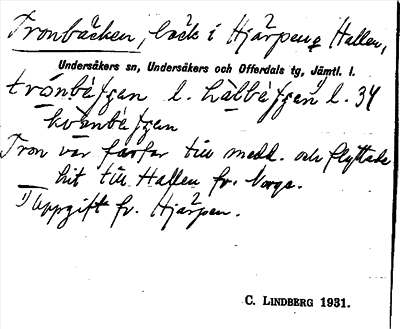 Tronbäcken, bäck i Hjärpen, Hallen,
Undersåkers sn, Undersåkers och Offerdals tg, Jämtl. l.
trónbäʃʃan l. halbäʃʃan l. 34
kvänbäʃʃan
Tron var farfar till medd. och flyttade
hit till Hallen fr. Norge.
1) Uppgift fr. Hjärpen.
C. LINDBERG 1931.